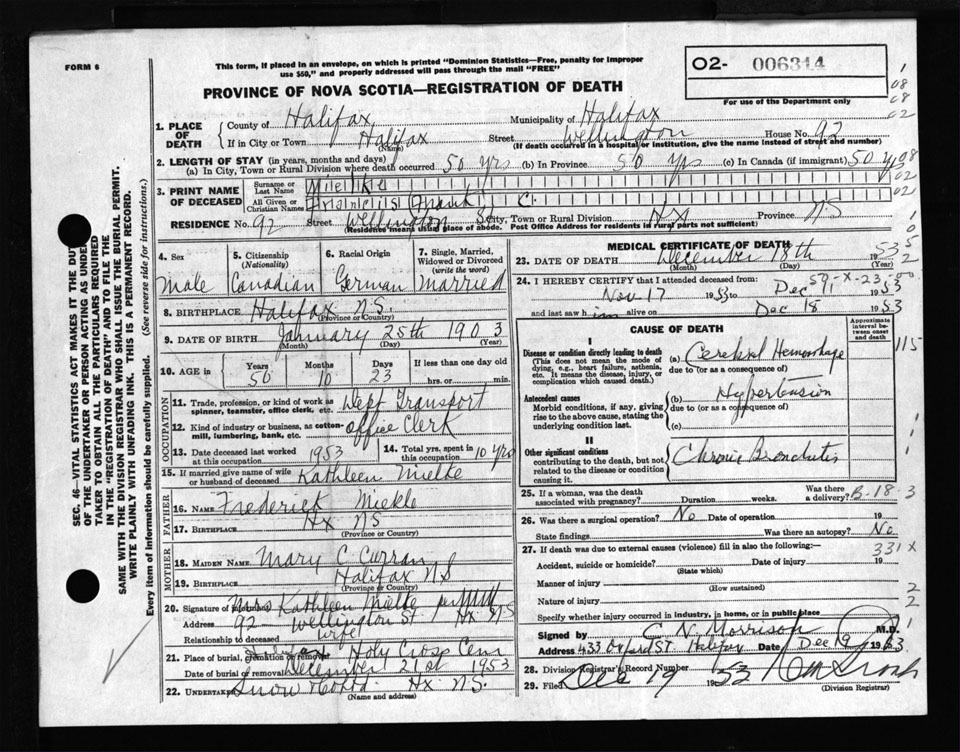 FORM 6
This form, if placed in an envelope, on which is printed "Dominion Statistics—Free, penalty for improper
use $50," and properly addressed will pass through the mail "FREE"
O2- 006314
For use of the Department only
PROVINCE OF NOVA SCOTIA—REGISTRATION OF DEATH
1. PLACE OF DEATH County of Halifax Municipality of Halifax
If in City or Town Halifax (Name) Street Wellington House No. 92
(If death occurred in a hospital or institution, give the name instead of street and number)
2. LENGTH OF STAY (in years, months and days)
(a) In City, Town or Rural Division where death occurred 50 yrs (b) In Province 50 yrs (c) In Canada (if immigrant) 50 yrs
3. PRINT NAME OF DECEASED Surname or Last Name Mielke
All Given or Christian Names Francis Frank C.
RESIDENCE No. 92 Street Wellington St. City, Town or Rural Division HX Province NS
(Residence means usual place of abode. Post Office Address for residents in rural parts not sufficient)
4. Sex Male
5. Citizenship (Nationality) Canadian
6. Racial Origin German
7. Single, Married, Widowed or Divorced (write the word) Married
8. BIRTHPLACE Halifax N.S.
(Province or Country)
9. DATE OF BIRTH January 25th 1903
(Month) (Day) (Year)
10. AGE in Years 50 Months 10 Days 23 If less than one day old hrs. or min.
OCCUPATION
11. Trade, profession, or kind of work as spinner, teamster, office clerk, etc. Dept Transport
12. Kind of industry or business, as cotton-mill, lumbering, bank, etc. Office Clerk
13. Date deceased last worked at this occupation 1953
14. Total yrs. spent in this occupation 10 yrs
15. If married give name of wife or husband of deceased Kathleen Mielke
FATHER
16. NAME Frederick Mielke
17. BIRTHPLACE HX NS
(Province or Country)
MOTHER
18. MAIDEN NAME Mary C Curran
19. BIRTHPLACE Halifax NS
(Province or Country)
20. Signature of informant Mrs Kathleen Mielke per
Address 92 Wellington St HX NS
Relationship to deceased wife
21. Place of burial, cremation or removal Holy Cross Cem
Date of burial or removal December 21st 1953
22. Undertaker Snow HX N.S.
(Name and address)
MEDICAL CERTIFICATE OF DEATH
23. DATE OF DEATH December 18th 1953
(Month) (Day) (Year)
24. I HEREBY CERTIFY that I attended deceased from:
Nov 17 1953 to Dec 1953
and last saw him alive on Dec 18 1953
CAUSE OF DEATH
Approximate interval between onset and death
I
Disease or condition directly leading to death (a) Cerebral Hemorrhage
(This does not mean the mode of dying, e.g., heart failure, asthenia, etc. It means the disease, injury, or complication which caused death.)
due to (or as a consequence of)
Antecedent causes (b) Hypertension
Morbid conditions, if any, giving rise to the above cause, stating the underlying condition last.
due to (or as a consequence of)
(c)
II
Other significant conditions Chronic Bronchitis
contributing to the death, but not related to the disease or condition causing it.
25. If a woman, was the death associated with pregnancy? Duration weeks. Was there a delivery? B-18-3
26. Was there a surgical operation? No Date of operation 19
State findings Was there an autopsy? No
27. If death was due to external causes (violence) fill in also the following:— 331X
Accident, suicide or homicide? Date of injury 19
(State which)
Manner of injury
(How sustained)
Nature of injury
Specify whether injury occurred in industry, in home, or in public place
Signed by C N Morrison M.D.
Address 433 Oxford St. Halifax Date Dec 19 1953
28. Division Registrar's Record Number
29. Filed Dec 19 1953
(Division Registrar)
SEC. 46—VITAL STATISTICS ACT MAKES IT THE DUTY
OF THE UNDERTAKER OR PERSON ACTING AS UNDER-
TAKER TO OBTAIN ALL THE PARTICULARS REQUIRED
IN THE "REGISTRATION OF DEATH" AND TO FILE THE
SAME WITH THE DIVISION REGISTRAR WHO SHALL ISSUE THE BURIAL PERMIT.
WRITE PLAINLY WITH UNFADING INK. THIS IS A PERMANENT RECORD.
Every item of information should be carefully supplied. (See reverse side for instructions.)